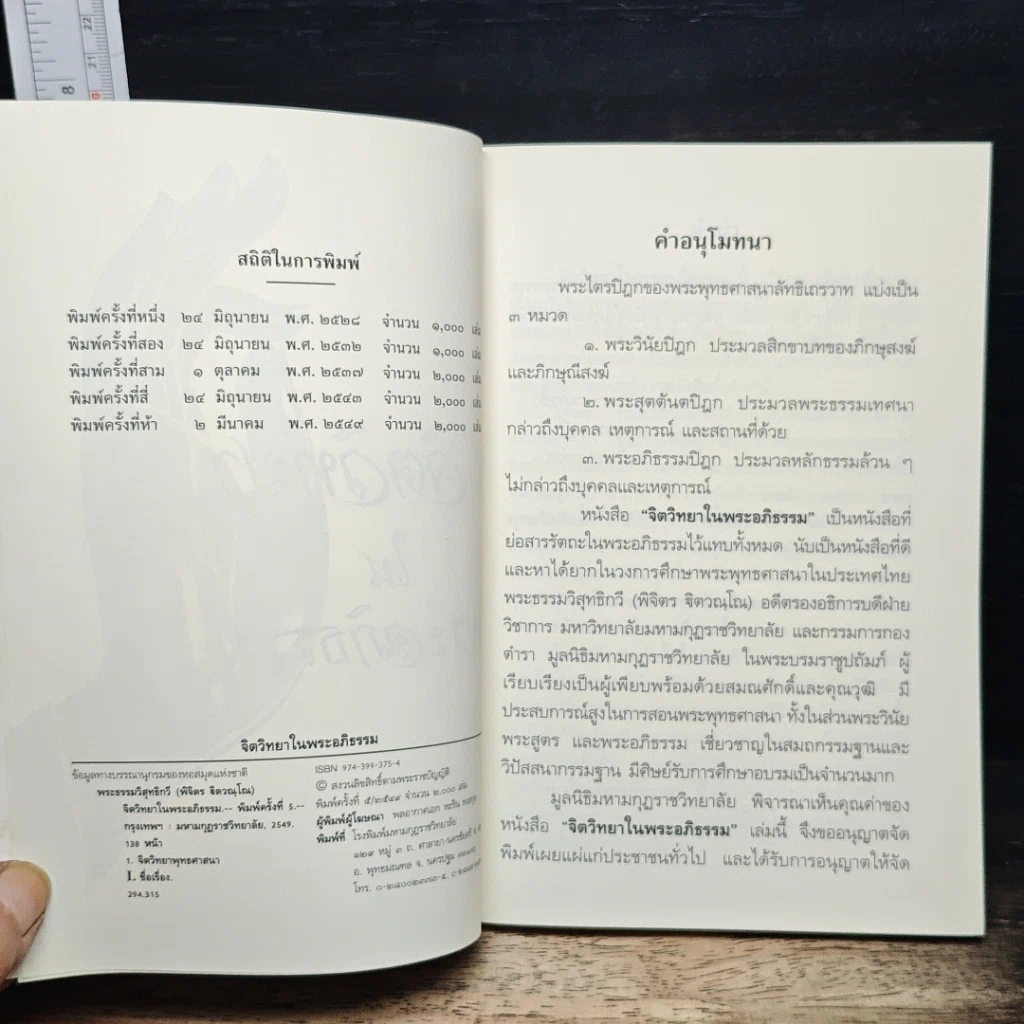 8
22
21
สถิติในการพิมพ์
พิมพ์ครั้งที่หนึ่ง ๒๔ มิถุนายน พ.ศ. ๒๕๒๘ จำนวน ๑,๐๐๐ เล่ม
พิมพ์ครั้งที่สอง ๒๔ มิถุนายน พ.ศ. ๒๕๓๒ จำนวน ๑,๐๐๐ เล่ม
พิมพ์ครั้งที่สาม ๑ ตุลาคม พ.ศ. ๒๕๓๗ จำนวน ๒,๐๐๐ เล่ม
พิมพ์ครั้งที่สี่ ๒๔ มิถุนายน พ.ศ. ๒๕๔๓ จำนวน ๒,๐๐๐ เล่ม
พิมพ์ครั้งที่ห้า ๒ มีนาคม พ.ศ. ๒๕๔๙ จำนวน ๒,๐๐๐ เล่ม
จิตวิทยาในพระอภิธรรม
ข้อมูลทางบรรณานุกรมของหอสมุดแห่งชาติ
พระธรรมวิสุทธิกวี (พิจิตร ฐิตวณฺโณ)
จิตวิทยาในพระอภิธรรม.-- พิมพ์ครั้งที่ 5.--
กรุงเทพฯ : มหามกุฏราชวิทยาลัย, 2549.
138 หน้า
1. จิตวิทยาพุทธศาสนา
I. ชื่อเรื่อง.
294.315
ISBN 974-399-375-4
© สงวนลิขสิทธิ์ตามพระราชบัญญัติ
พิมพ์ครั้งที่ ๕/๒๕๔๙ จำนวน ๒,๐๐๐ เล่ม
ผู้พิมพ์ผู้โฆษณา พลอากาศเอก
พิมพ์ที่ โรงพิมพ์มหามกุฏราชวิทยาลัย
๑๒๙ หมู่ ๓ ถ. ศาลายา-นครชัยศรี ต.
อ. พุทธมณฑล จ. นครปฐม
โทร. ๐-๒๘๐๐๒๓๗๓-๔,
คำอนุโมทนา
พระไตรปิฎกของพระพุทธศาสนาลัทธิเถรวาท แบ่งเป็น
๓ หมวด
๑. พระวินัยปิฎก ประมวลสิกขาบทของภิกษุสงฆ์
และภิกษุณีสงฆ์
๒. พระสุตตันตปิฎก ประมวลพระธรรมเทศนา
กล่าวถึงบุคคล เหตุการณ์ และสถานที่ด้วย
๓. พระอภิธรรมปิฎก ประมวลหลักธรรมล้วน ๆ
ไม่กล่าวถึงบุคคลและเหตุการณ์
หนังสือ “จิตวิทยาในพระอภิธรรม” เป็นหนังสือที่
ย่อสารรัตถะในพระอภิธรรมไว้แทบทั้งหมด นับเป็นหนังสือที่ดี
และหาได้ยากในวงการศึกษาพระพุทธศาสนาในประเทศไทย
พระธรรมวิสุทธิกวี (พิจิตร ฐิตวณฺโณ) อดีตรองอธิการบดีฝ่าย
วิชาการ มหาวิทยาลัยมหามกุฏราชวิทยาลัย และกรรมการกอง
ตำรา มูลนิธิมหามกุฏราชวิทยาลัย ในพระบรมราชูปถัมภ์ ผู้
เรียบเรียงเป็นผู้เพียบพร้อมด้วยสมณศักดิ์และคุณวุฒิ มี
ประสบการณ์สูงในการสอนพระพุทธศาสนา ทั้งในส่วนพระวินัย
พระสูตร และพระอภิธรรม เชี่ยวชาญในสมถกรรมฐานและ
วิปัสสนากรรมฐาน มีศิษย์รับการศึกษาอบรมเป็นจำนวนมาก
มูลนิธิมหามกุฏราชวิทยาลัย พิจารณาเห็นคุณค่าของ
หนังสือ “จิตวิทยาในพระอภิธรรม” เล่มนี้ จึงขออนุญาตจัด
พิมพ์เผยแผ่แก่ประชาชนทั่วไป และได้รับการอนุญาตให้จัด